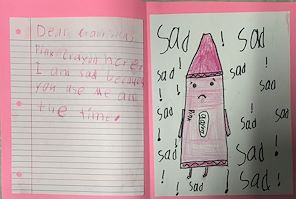 Dear
Pink crayon here
I am sad because
you use me all
the time.
sad ! sad
sad ! sad
! sad
sad ! sad
Pink
crayon
sad ! sad
sad ! sad
sad ! sad !
sad